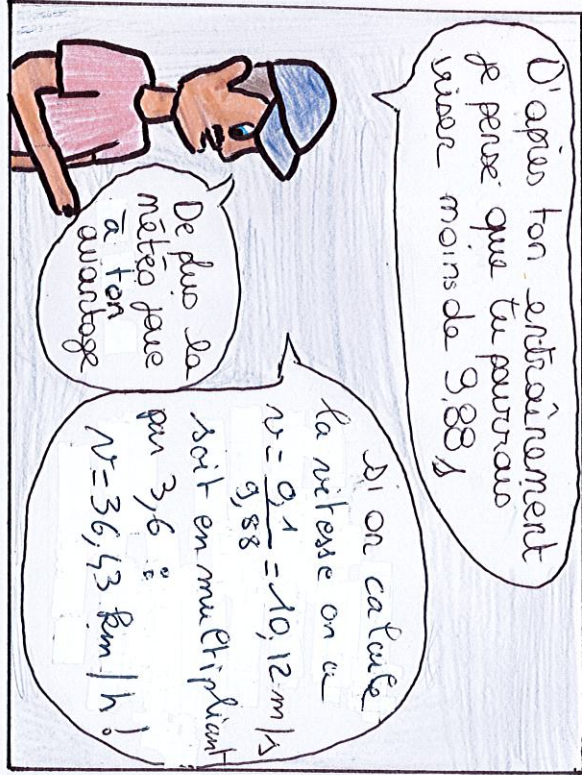 D'après ton entraînement
je pense que tu pourrais
viser moins de 9,88s
De plus la
météo joue
à ton
avantage
Si on calcule
la vitesse on a
v = 0,1/9,88 = 10,12 m/s
soit en multipliant
par 3,6 :
v = 36,43 km/h !